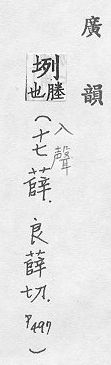 廣韻
埒塍也
入聲
(十七薛.良薛切.P497)